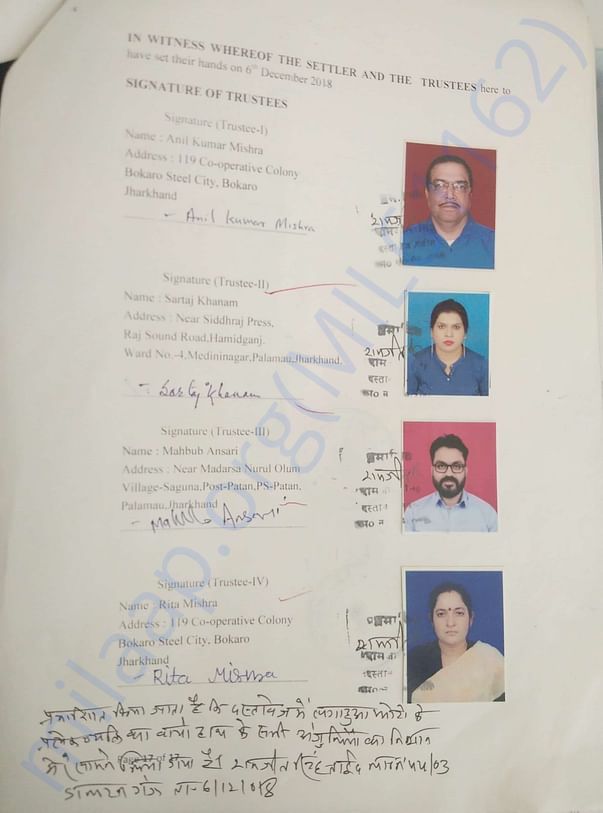 IN WITNESS WHEREOF THE SETTLER AND THE TRUSTEES here to
have set their hands on 6th December 2018
SIGNATURE OF TRUSTEES
Signature (Trustee-I)
Name : Anil Kumar Mishra
Address : 119 Co-operative Colony
Bokaro Steel City, Bokaro
Jharkhand
Anil Kumar Mishra
Signature (Trustee-II)
Name : Sartaj Khanam
Address : Near Siddhraj Press,
Raj Sound Road,Hamidganj.
Ward No.-4,Medininagar,Palamau,Jharkhand.
Sartaj Khanam
Signature (Trustee-III)
Name : Mahbub Ansari
Address : Near Madarsa Nurul Olum
Village-Saguna,Post-Patan,PS-Patan,
Palamau,Jharkhand
Ansari
Signature (Trustee-IV)
Name : Rita Mishra
Address : 119 Co-operative Colony
Bokaro Steel City, Bokaro
Jharkhand
Rita Mishra
प्रमाणित किया जाता है कि दस्तावेज में लगा हुआ फोटो के
प्रत्येक व्यक्ति का बायां हाथ के सभी अंगुलियों का निशान
मेरे सामने लिया गया है।
ता-6/12/018
Page 17 of 17
milaap.org(MIL